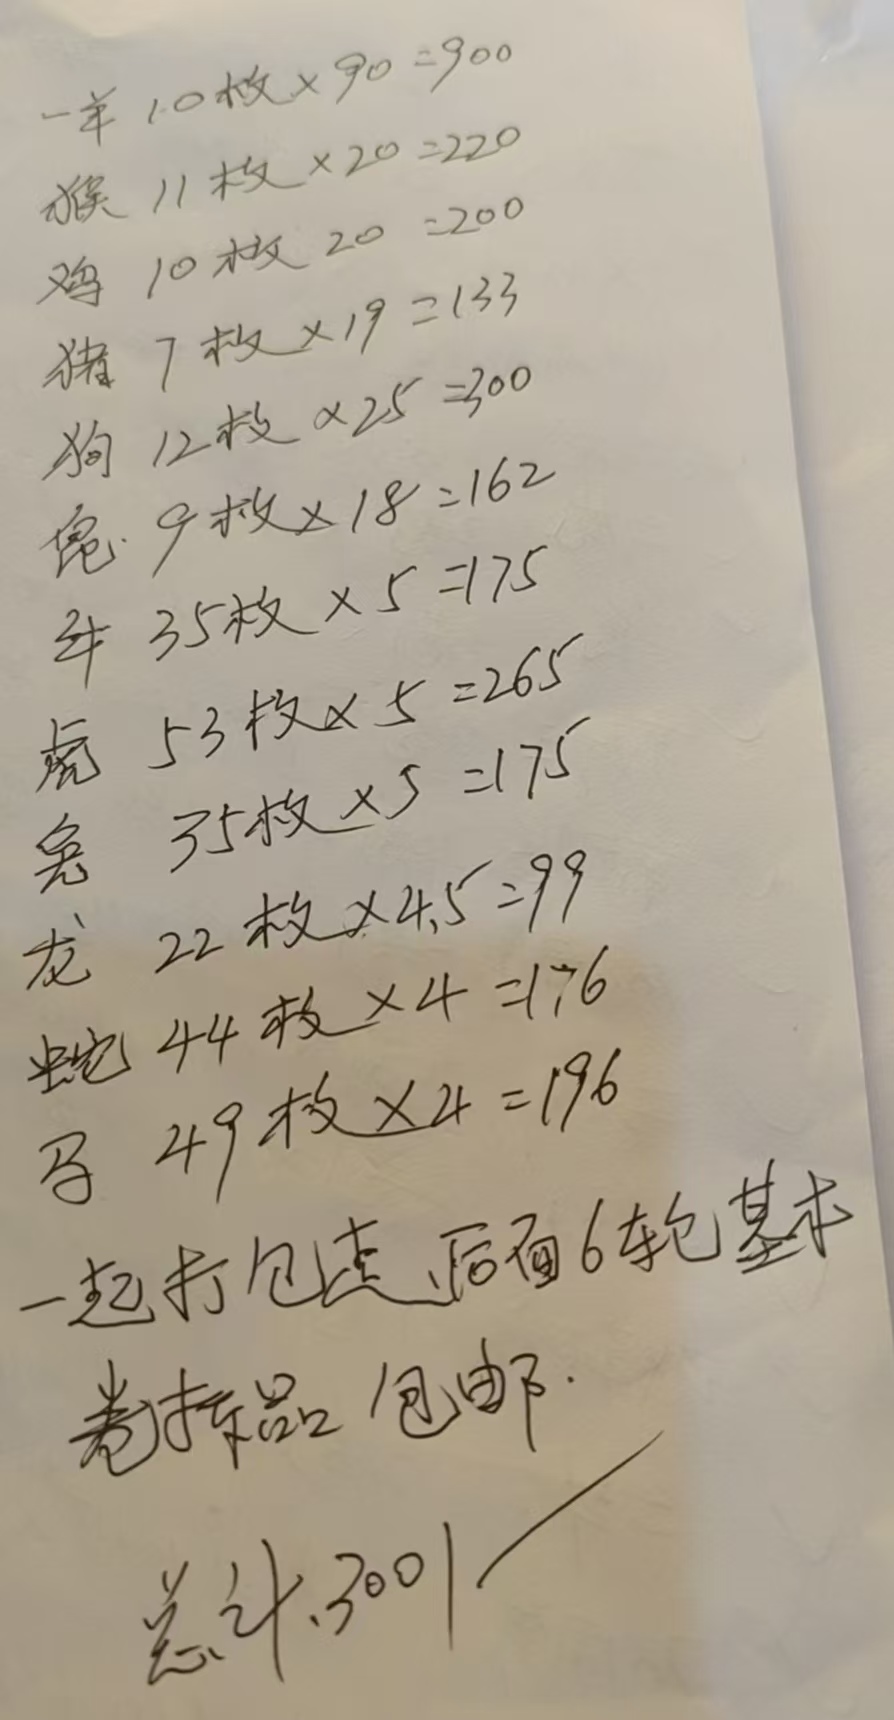 一羊 10枚×90=900
猴 11枚×20=220
鸡 10枚 20=200
猪 7枚×19=133
狗 12枚×25=300
鼠 9枚×18=162
牛 35枚×5=175
虎 53枚×5=265
兔 35枚×5=175
龙 22枚×4.5=99
蛇 44枚×4=176
马 49枚×4=196
一起打包走,后面6轮基本
卷拆品 包邮.
总计.3001